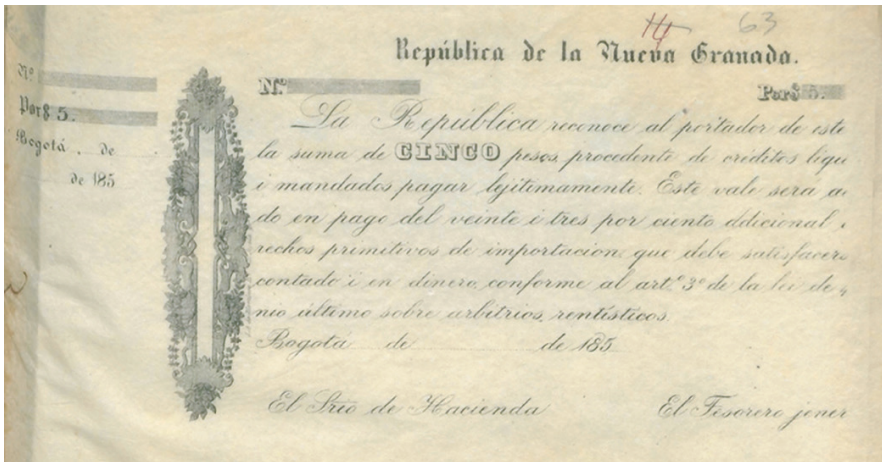 14 63
República de la Nueva Granada.
Nº
Nº Por $ 5.
Por $ 5.
Bogotá de
de 185
La República reconoce al portador de este
la suma de CINCO pesos, procedente de créditos liqui
i mandados pagar lejitimamente. Este vale será a
do en pago del veinte i tres por ciento adicional
rechos primitivos de importacion, que debe satisfacers
contado i en dinero, conforme al artº 3º de la lei de 4
nio último sobre arbitrios rentísticos.
Bogotá de de 185
El Srio de Hacienda El Tesorero jener